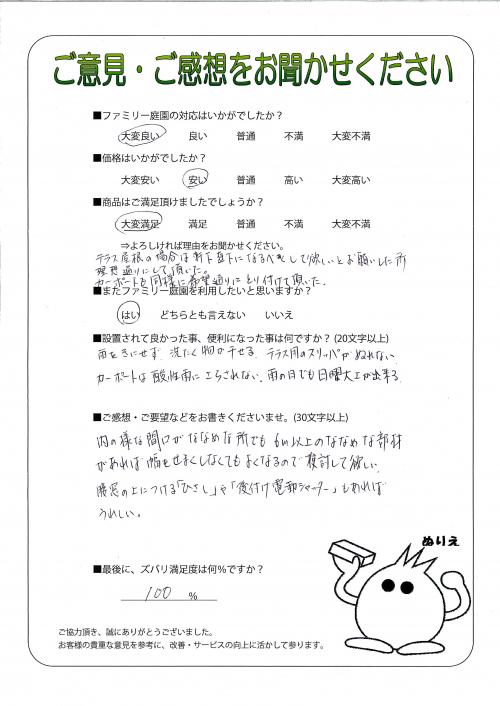 ご意見・ご感想をお聞かせください
■ファミリー庭園の対応はいかがでしたか?
大変良い 良い 普通 不満 大変不満
■価格はいかがでしたか?
大変安い 安い 普通 高い 大変高い
■商品はご満足頂けましたでしょうか?
大変満足 満足 普通 不満 大変不満
⇒よろしければ理由をお聞かせください。
テラス屋根の場合は軒下真下になるべくして欲しいとお願いした所
理想通りにして頂いた。
カーポートも同様に希望通りにとり付けて頂いた。
■またファミリー庭園を利用したいと思いますか?
はい どちらとも言えない いいえ
■設置されて良かった事、便利になった事は何ですか?(20文字以上)
雨をきにせず 洗たく物が干せる テラス用のスリッパがぬれない
カーポートは酸性雨にさらされない、雨の日でも日曜大工が出来る
■ご感想・ご要望などをお書きくださいませ。(30文字以上)
内の様な間口がななめな所でも 6m以上のななめな部材
があれば幅をせまくしなくてもよくなるので検討して欲しい
腰窓の上につける「ひさし」や「後付け電動シャッター」もあれば
うれしい。
ぬりえ
■最後に、ズバリ満足度は何%ですか?
100 %
ご協力頂き、誠にありがとうございました。
お客様の貴重な意見を参考に、改善・サービスの向上に活かして参ります。